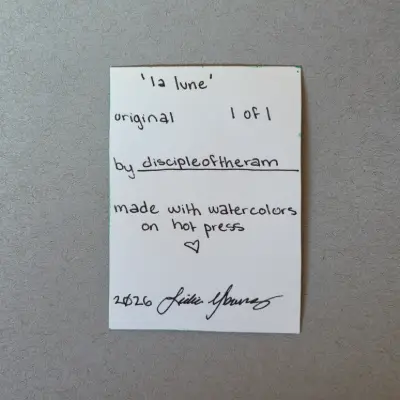 'la lune'
original 1 of 1
by discipleoftheram
made with watercolors
on hot press
2026